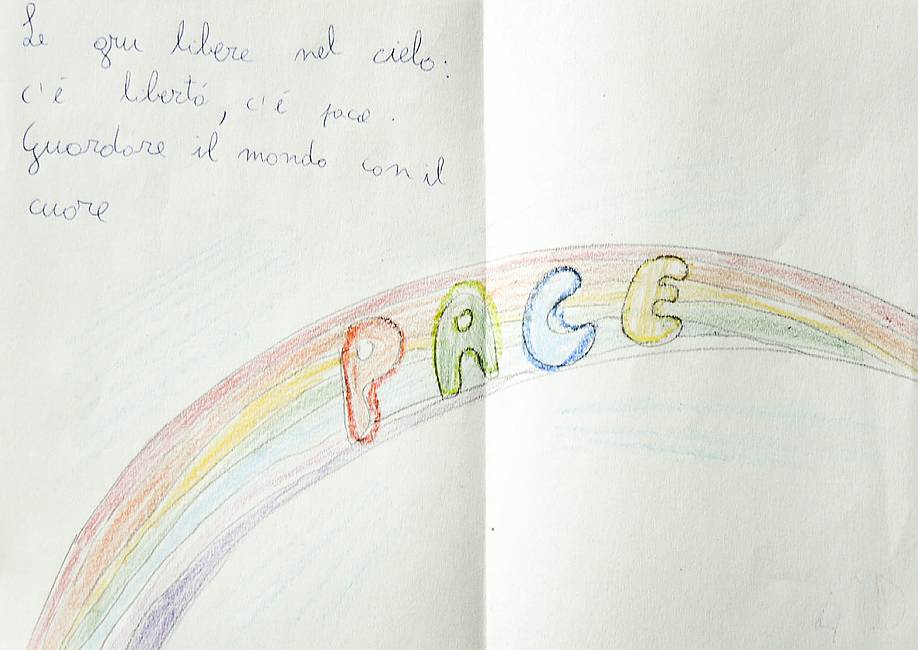 Le gru libere nel cielo:
c'é libertá, c'é pace.
Guardare il mondo con il
cuore
PACE